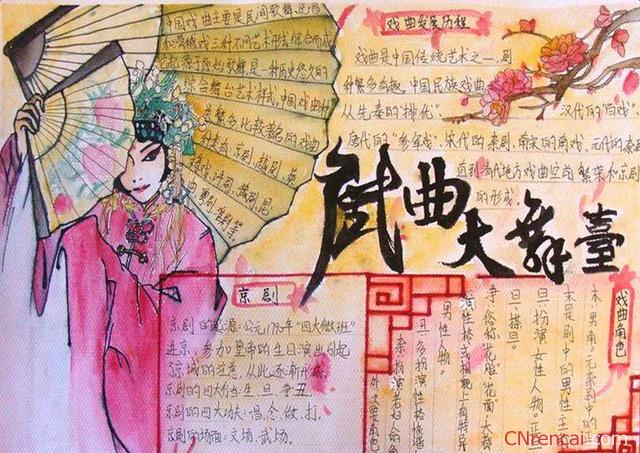 中国戏曲主要是民间歌舞、说唱
和滑稽戏三种不同艺术形式综合而成
它起源于原始歌舞,是一种历史悠久的
综合舞台艺术样式。中国戏曲种
类繁多比较著名的戏曲
种类有:京剧、越剧、
曲、粤剧、淮剧等。
戏曲发展历程
戏曲是中国传统艺术之一,剧
种繁多有趣。中国民族戏曲
从先秦的"俳优" 汉代的"百戏"
唐代的"参军戏"、宋代的杂剧、南宋的南戏、元代的杂
直到清代地方戏曲空前繁荣和京剧
的形成。
戏曲大舞臺
京剧
京剧的起源:公元1790年"四大徽班"
进京,参加皇帝的生日演出引起
了京城的注意,从此逐渐形成
京剧的四大行当:生、旦、净、丑
京剧的四大功夫:唱、念、做、打,
京剧的场面:文场、武场。
戏曲角色
末:男角,元杂剧中的正
末是剧中的男性主
旦:扮演女性人物。正
旦、搽旦。
净:俗称"花脸""花面"大都
是性格或相貌上有特异
男性人物。
丑:多扮演性格诙谐
外:次要角色
CNrencai.com